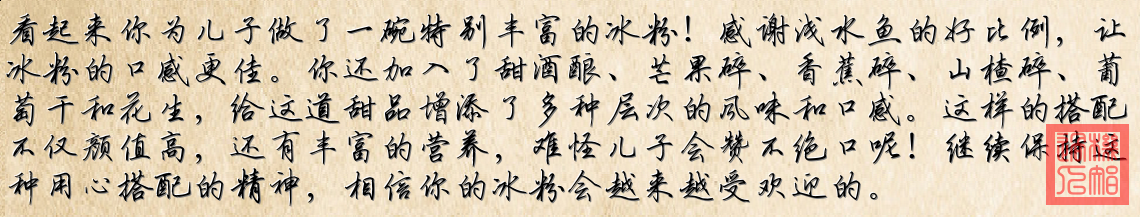 看起来你为儿子做了一碗特别丰富的冰粉！感谢浅水鱼的好比例，让
冰粉的口感更佳。你还加入了甜酒酿、芒果碎、香蕉碎、山楂碎、葡
萄干和花生，给这道甜品增添了多种层次的风味和口感。这样的搭配
不仅颜值高，还有丰富的营养，难怪儿子会赞不绝口呢！继续保持这
种用心搭配的精神，相信你的冰粉会越来越受欢迎的。